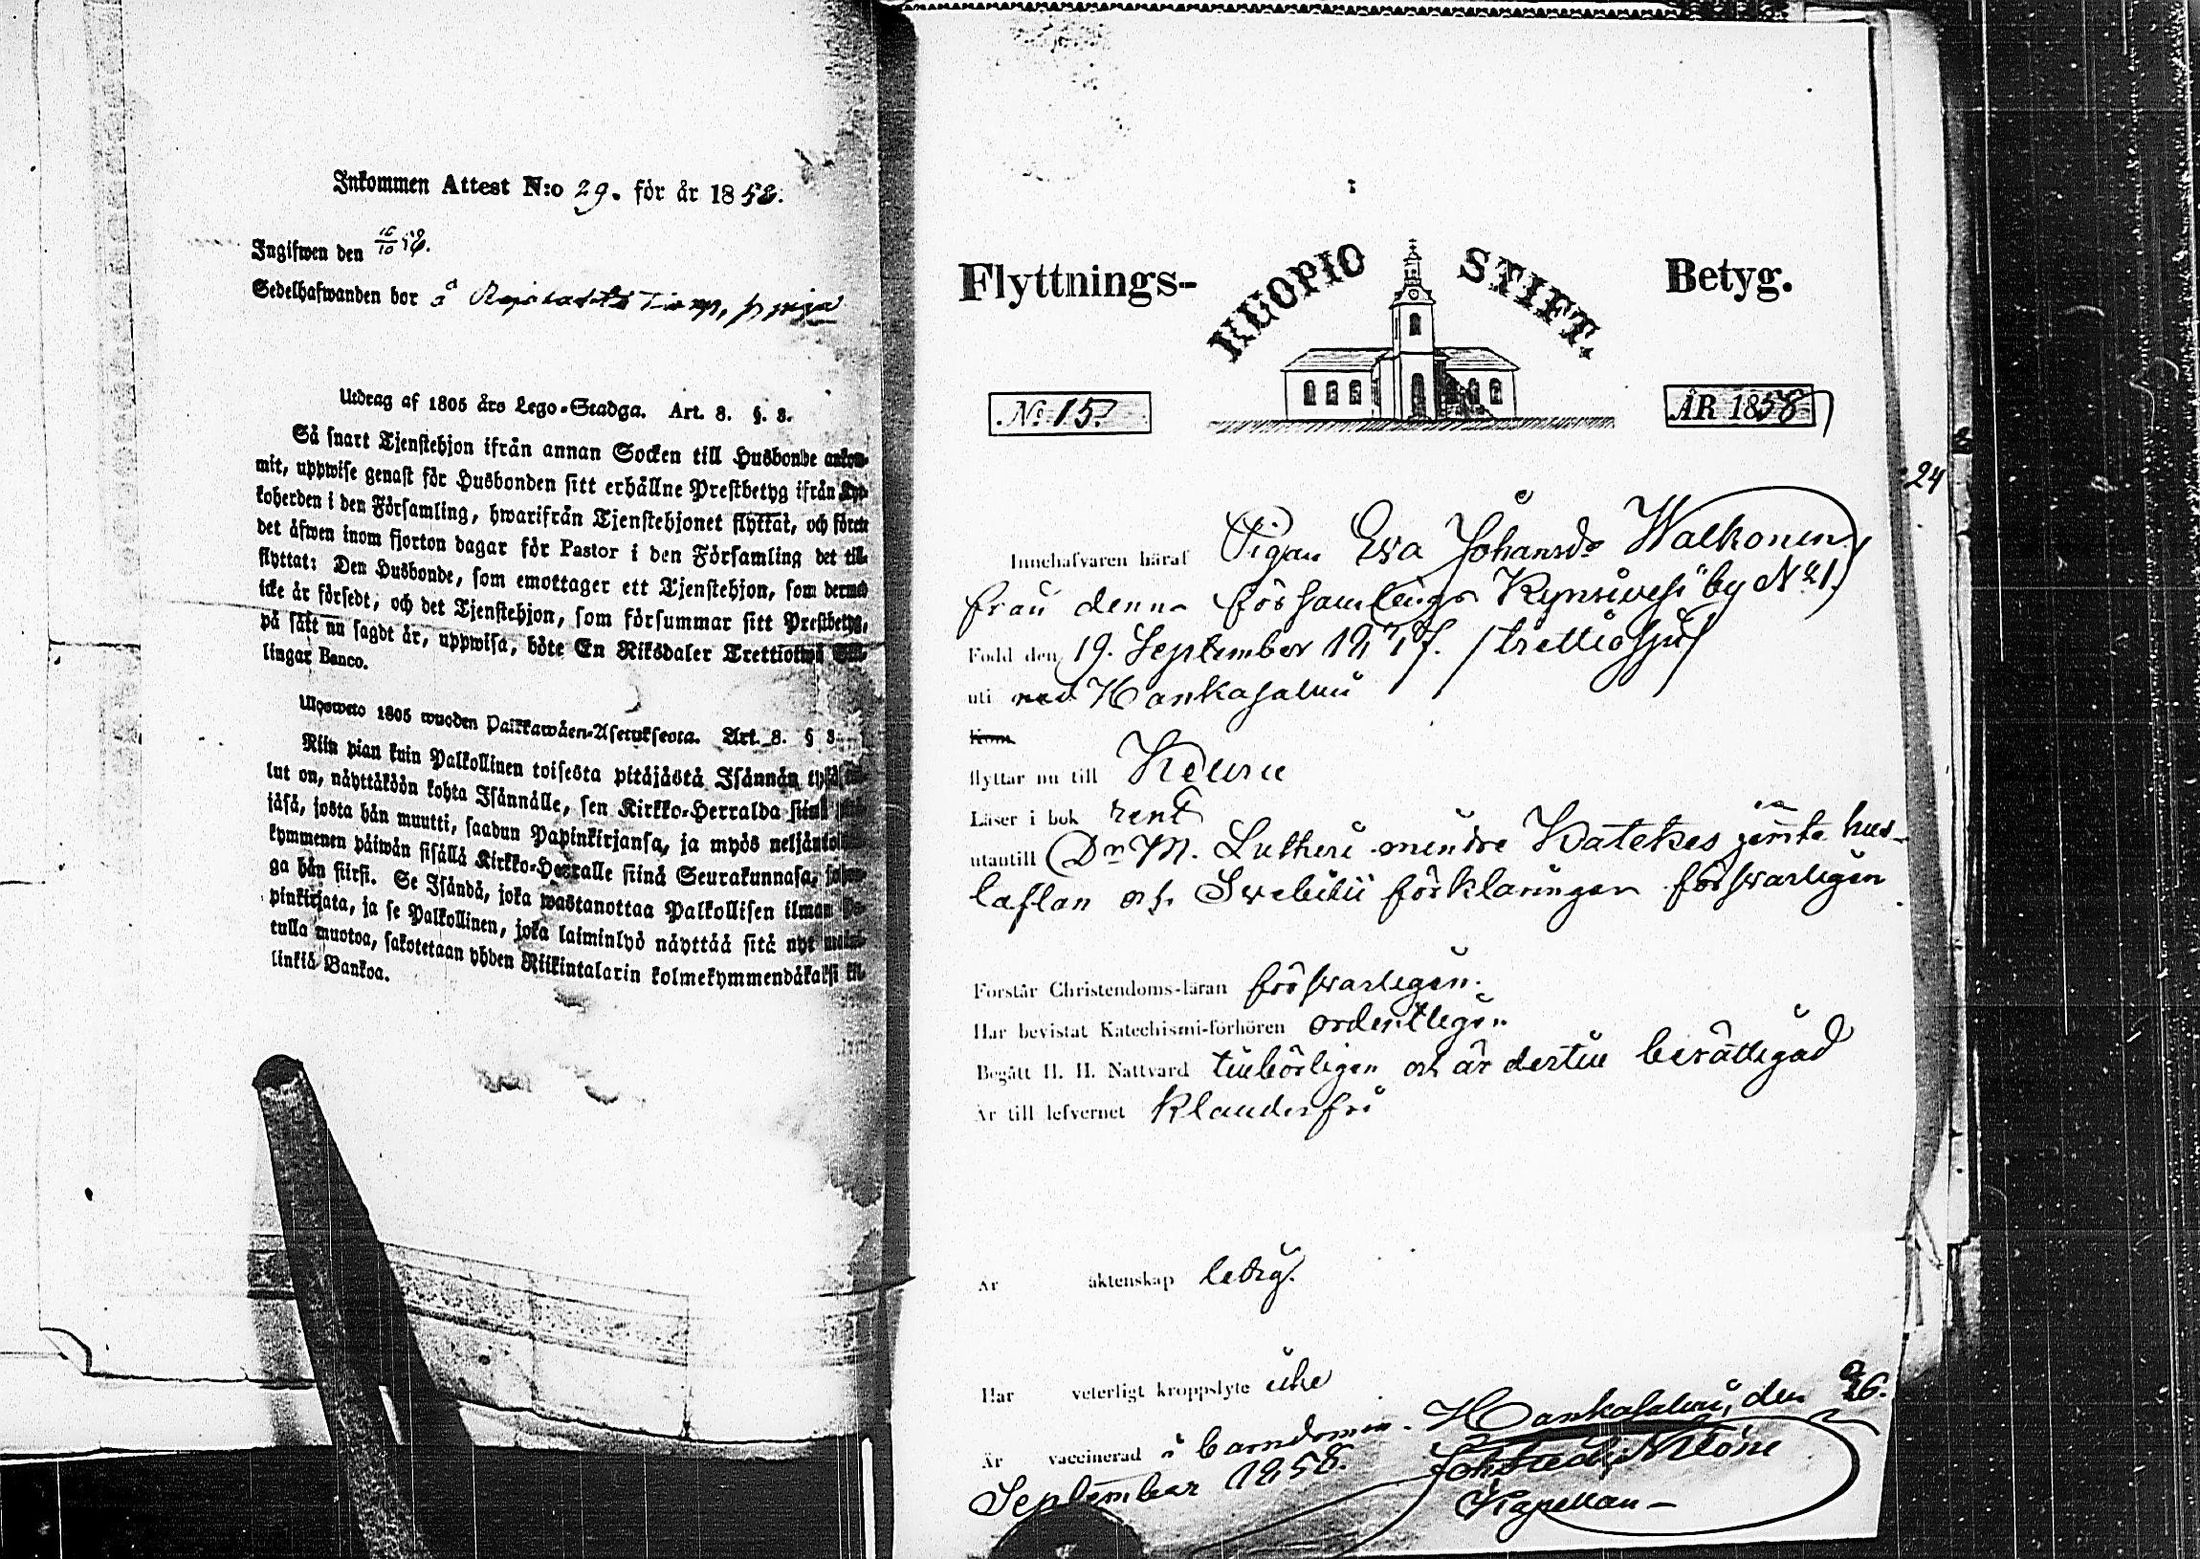 Inkommen Attest N:o 29. för år 1858.
Ingifwen den 16/10 58.
Sedelhafwanden bor å
Utdrag af 1805 års Lego-Stadga. Art. 8. §. 8.
Så snart Tjenstehjon ifrån annan Socken till Husbonde ankom-
mit, uppwise genast för Husbonden sitt erhållne Prestbetyg ifrån Kyr-
koherden i den Församling, hwarifrån Tjenstehjonet flyttat, och förete
det äfwen inom fjorton dagar för Pastor i den Församling det till-
flyttat: Den Husbonde, som emottager ett Tjenstehjon, som dermed
icke är försedt, och det Tjenstehjon, som försummar sitt Prestbetyg,
på sätt nu sagdt är, uppwisa, böte En Riksdaler Trettiotwå Skil-
lingar Banco.
Ulosweto 1805 wuoden Palkkawäen-Asetuksesta. Art. 8. § 8.
Niin pian kuin Palkollinen toisesta pitäjästä Isännän tykö tul-
lut on, näyttäköön kohta Isännälle, sen Kirkko-Herralda siinä pitä-
jäsä, josta hän muutti, saadun Papinkirjansa, ja myös neljäntoista-
kymmenen päiwän sisällä Kirkko-Herralle siinä Seurakunnasa, johon-
ga hän siirsi. Se Isändä, joka wastanottaa Palkollisen ilman Pa-
pinkirjata, ja se Palkollinen, joka laiminlyö näyttää sitä nyt maini-
tulla muotoa, sakotetaan yhden Riikintalarin kolmekymmendäkaksi kil-
linkiä Bankoa.
Flyttnings- KUOPIO STIFT. Betyg.
No 15. ÅR 1858
24
Innehafvaren häraf Pigan Eva Johansdr Walkonen
från denna församlings Kynsivesi by No 1.
Född den 19. September 1837. /trettiosju/
uti Hankasalmi
Kom
flyttar nu till Keuru
Läser i bok rent
utantill Dr M. Lutheri mindre Katekes jemte hus-
taflan och Swebilii förklaringen förswarligen
Förstår Christendoms-läran förswarligen.
Har bevistat Katechismi-förhören ordentligen
Begått H. H. Nattvard tillbörligen och är dertill berättigad
Är till lefvernet klanderfri
Är äktenskap ledig.
Har veterligt kroppslyte icke
Är vaccinerad i barndomen. Hankasalmi, den 26.
September 1858.
Kapellan